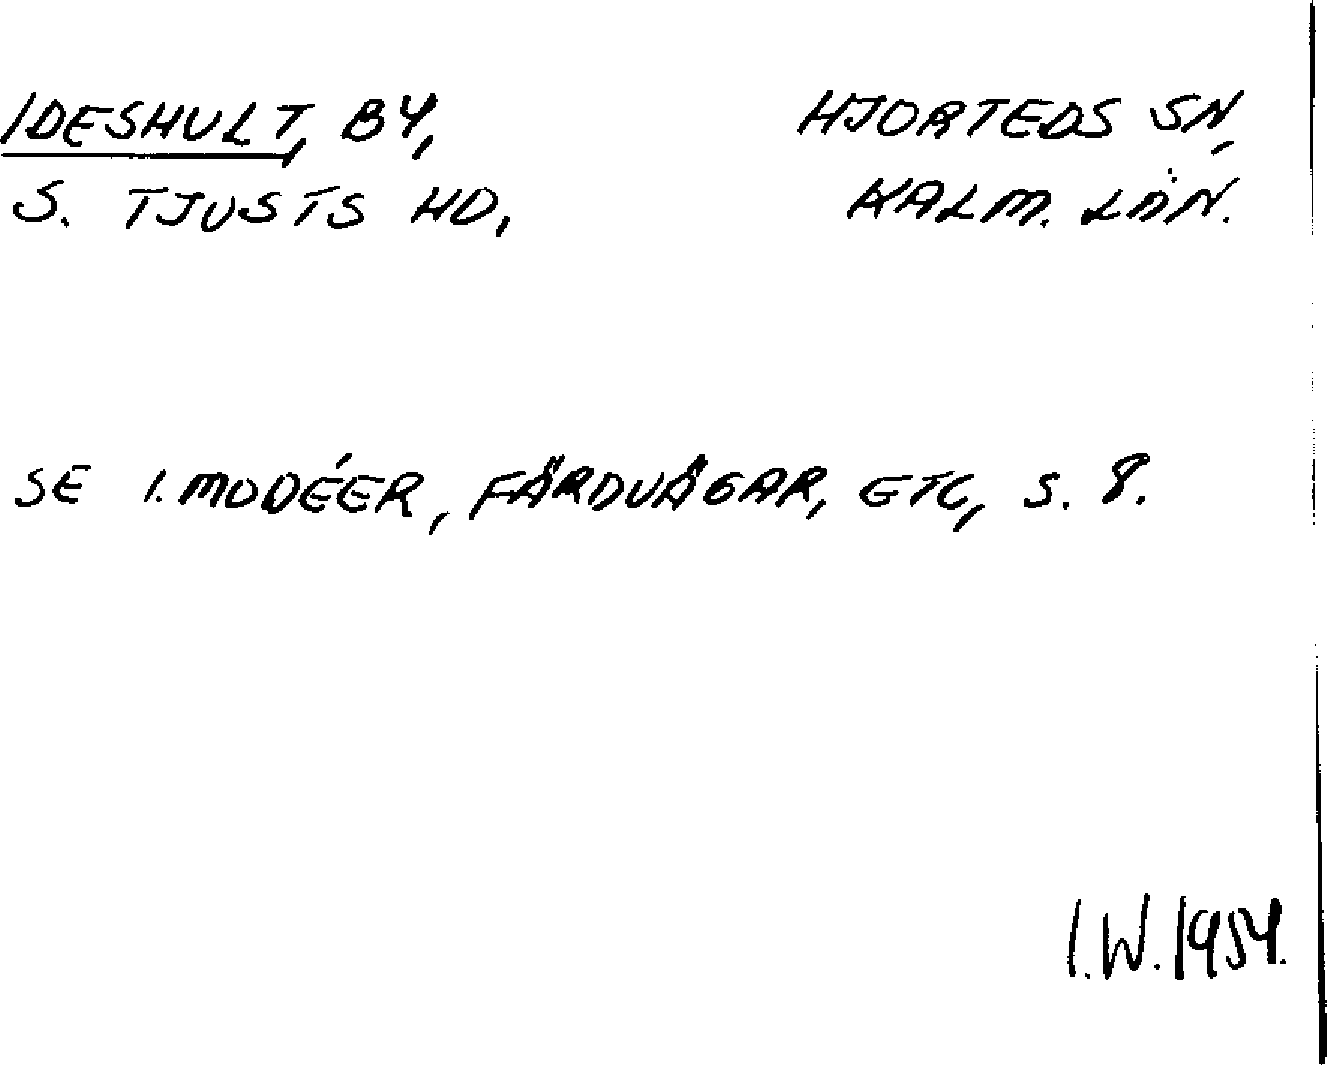 IDESHULT, BY, HJORTEDS SN,
S. TJUSTS HD, KALM. LÄN.
SE I. MODÉER, FÄRDVÄGAR, ETC, S. 8.
I.W. 1954.